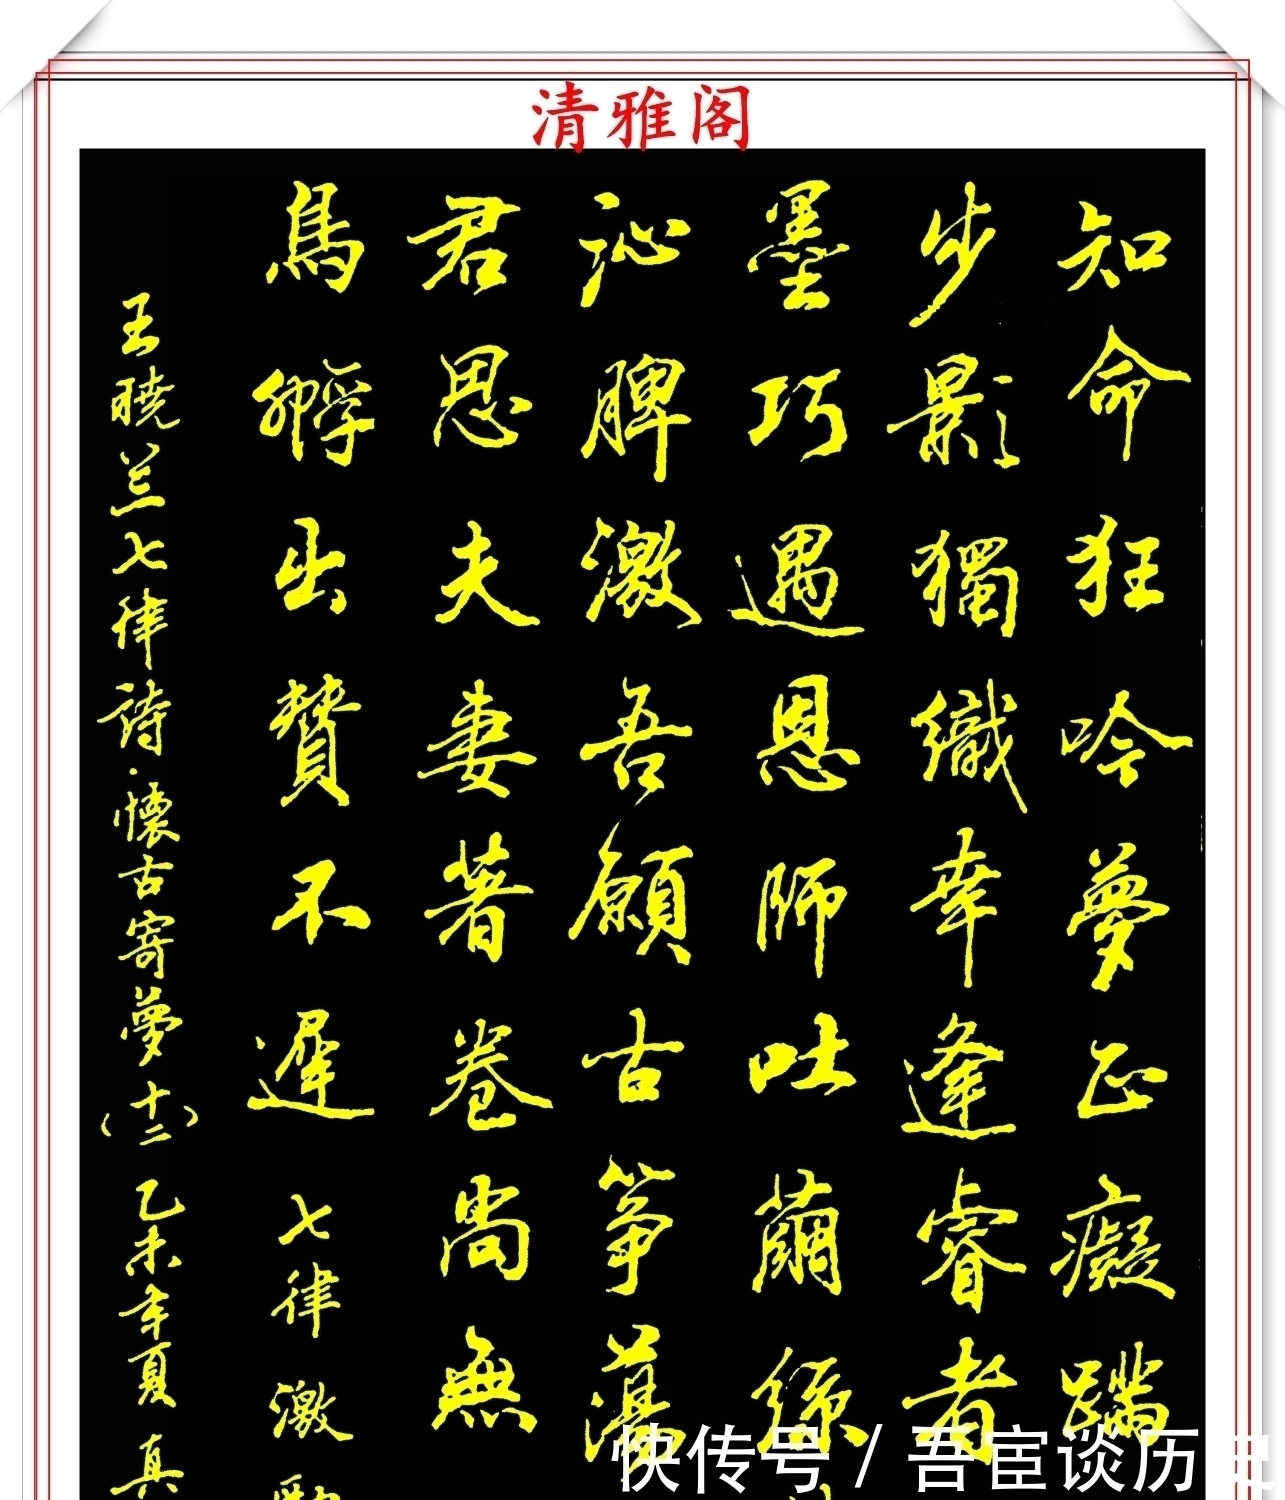 清雅阁
知命狂吟夢正癡蹣
步影獨織幸逢睿者
墨巧遇恩師吐繭
沁脾激吾願古筝蕩
君思夫妻著卷尚無
馬孵出贊不遲七律激
王曉兰七律詩·懷古寄夢(十二)乙未年夏真
快传号/吾宦谈历史